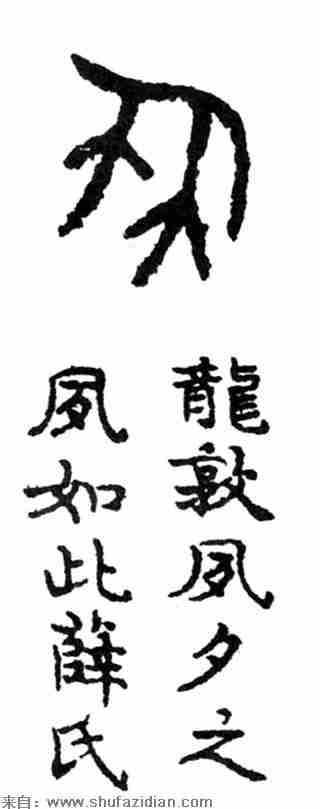 夙
龍敦夙夕之
夙如此薛氏
来自：www.shufazidian.com